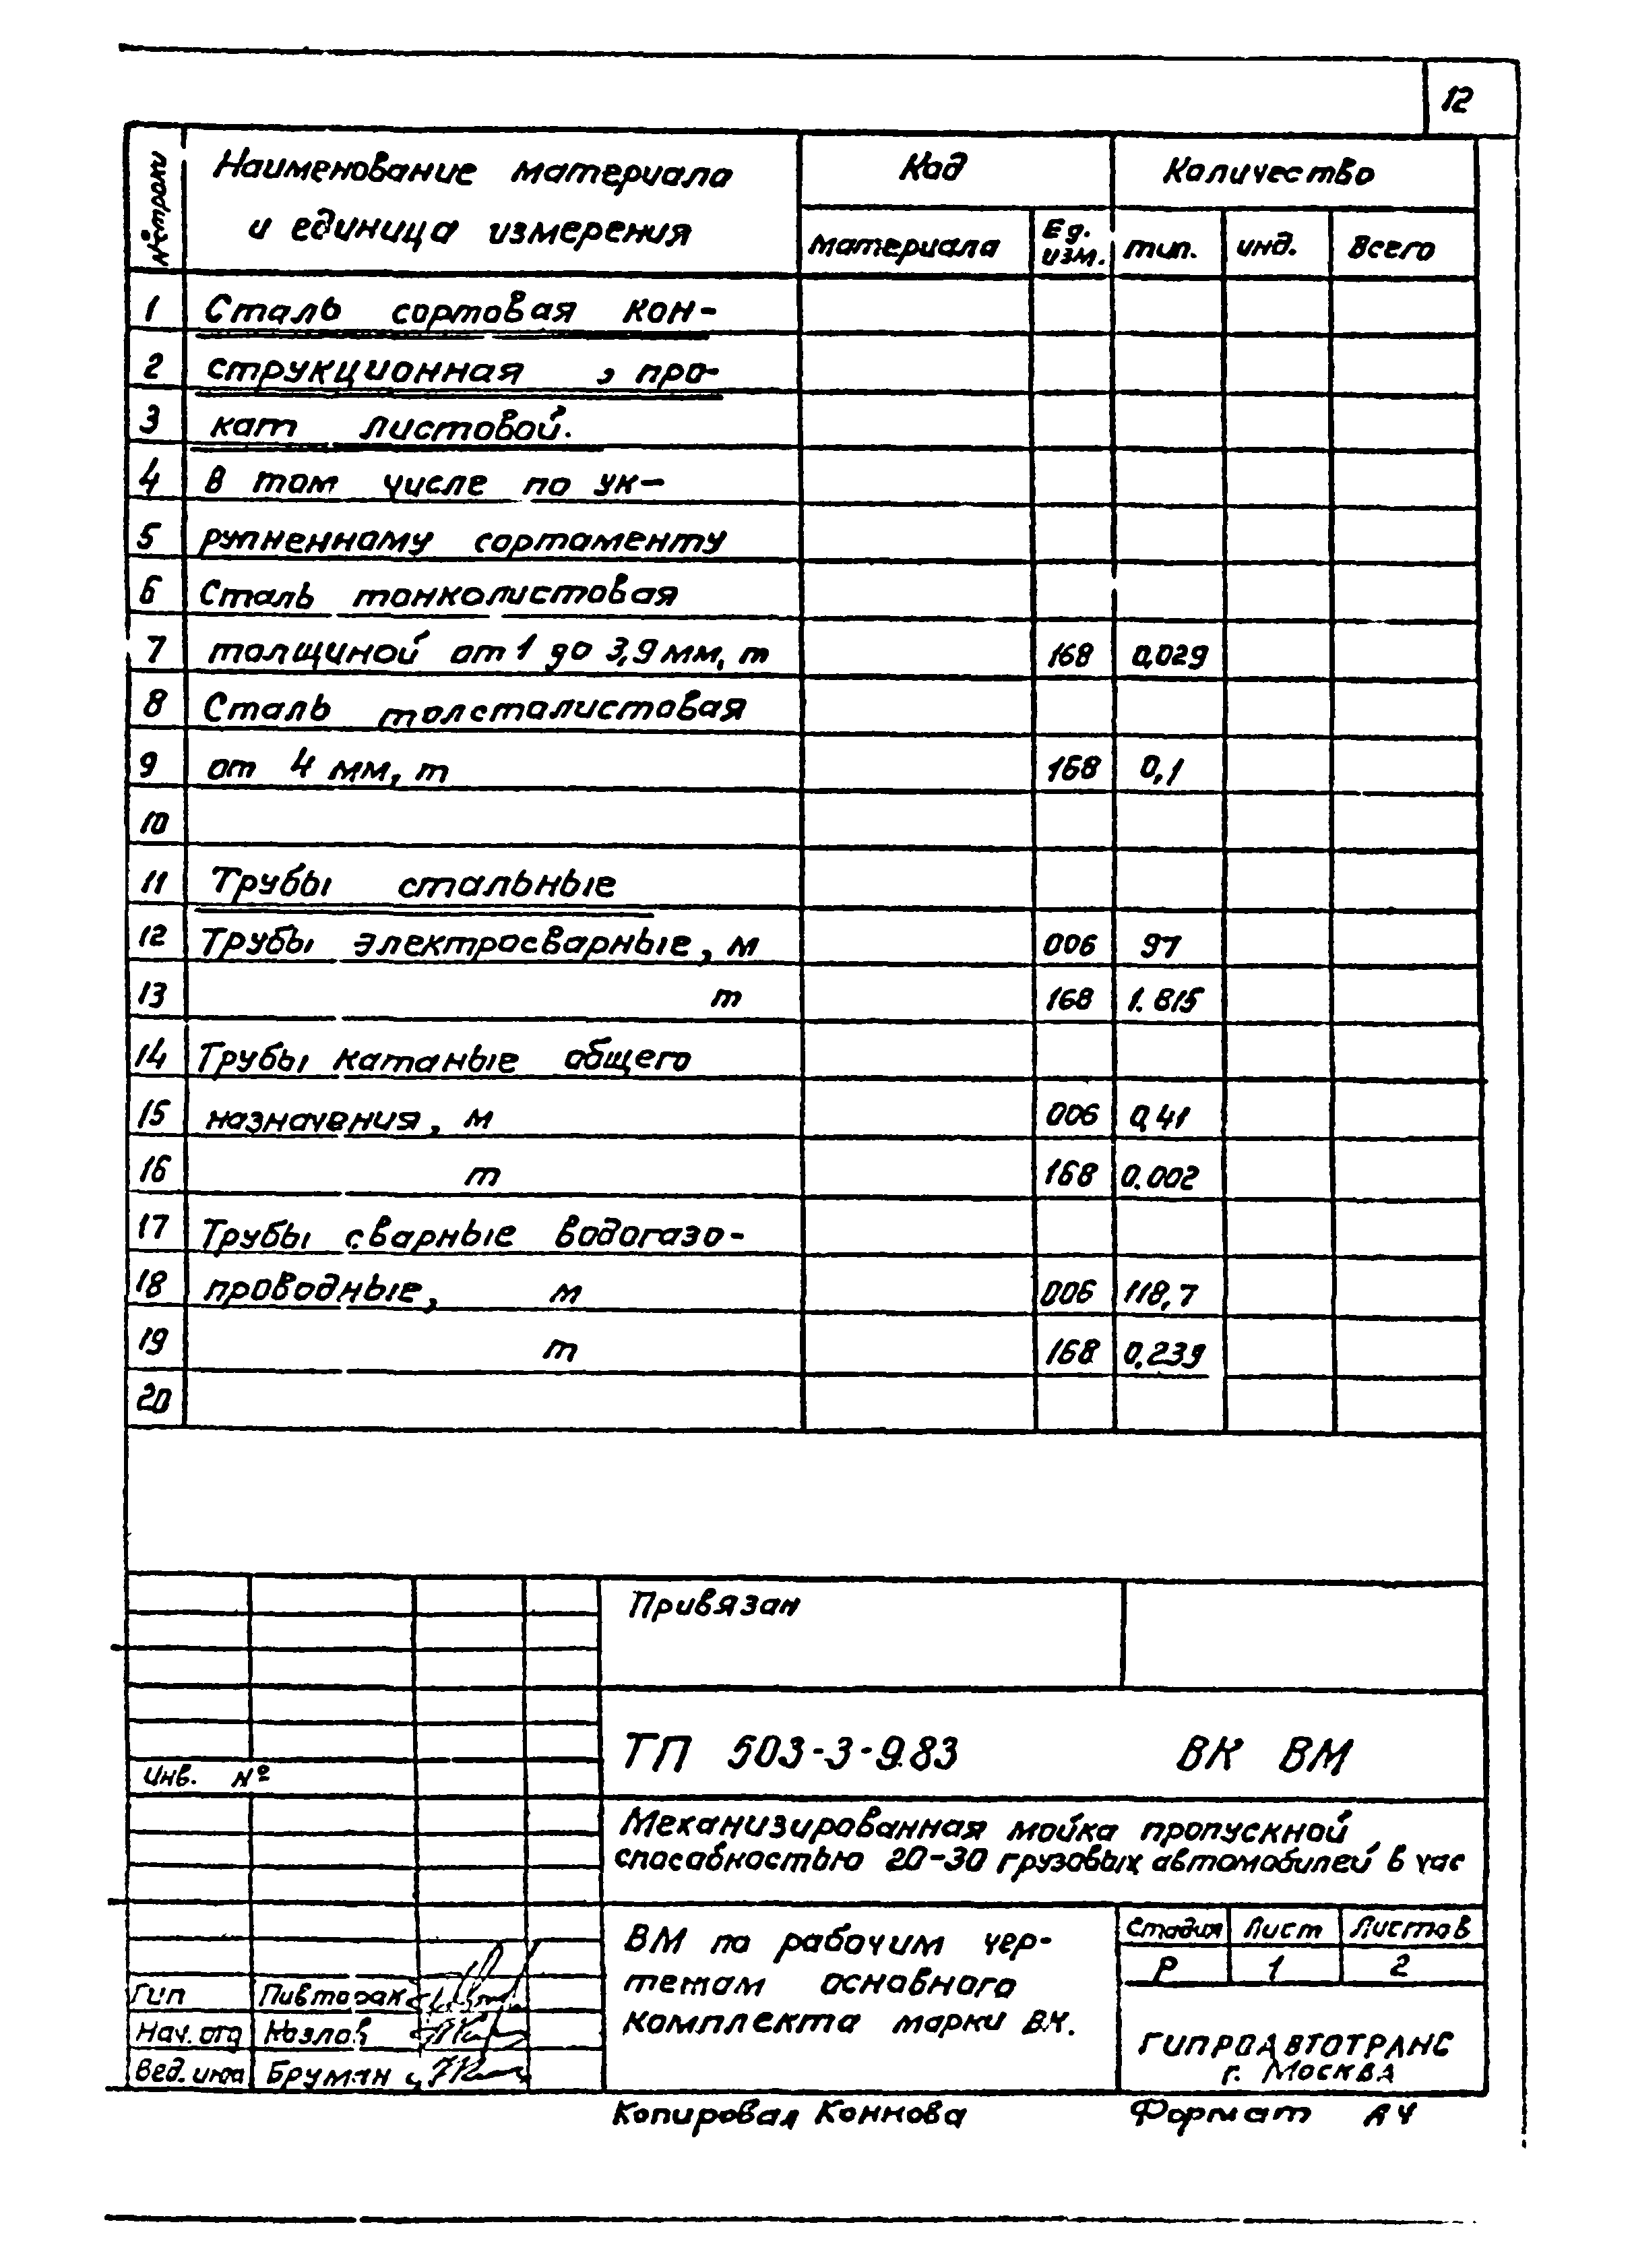 12
№ строки
Наименование материала
и единица измерения
Код
Количество
материала
Ед.
изм.
тип.
инд.
Всего
1 Сталь сортовая кон-
2 струкционная , про-
3 кат листовой.
4 В том числе по ук-
5 рупненному сортаменту
6 Сталь тонколистовая
7 толщиной от 1 до 3,9 мм, т 168 0,029
8 Сталь толстолистовая
9 от 4 мм, т 168 0,1
10
11 Трубы стальные
12 Трубы электросварные, м 006 97
13 т 168 1.815
14 Трубы катаные общего
15 назначения, м 006 0,41
16 т 168 0.002
17 Трубы сварные водогазо-
18 проводные, м 006 118,7
19 т 168 0,239
20
Привязан
Инв. №
ТП 503-3-9.83 ВК ВМ
Механизированная мойка пропускной
способностью 20-30 грузовых автомобилей в час
ВМ по рабочим чер-
тежам основного
комплекта марки ВК.
Стадия Лист Листов
Р 1 2
Гип Пивторак
Нач. отд Козлов
Вед. инж Бруман
ГИПРОАВТОТРАНС
г. Москва
Копировал Коннова Формат А4